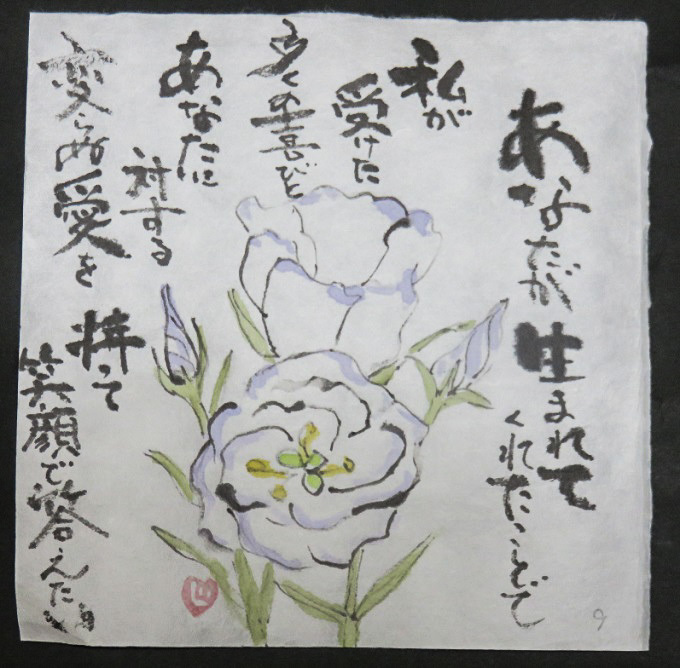 あなたが生まれて
くれたことで
私が
受けた
多くの喜びと
あなたに
対する
変らぬ愛を
持って
笑顔で答えたい